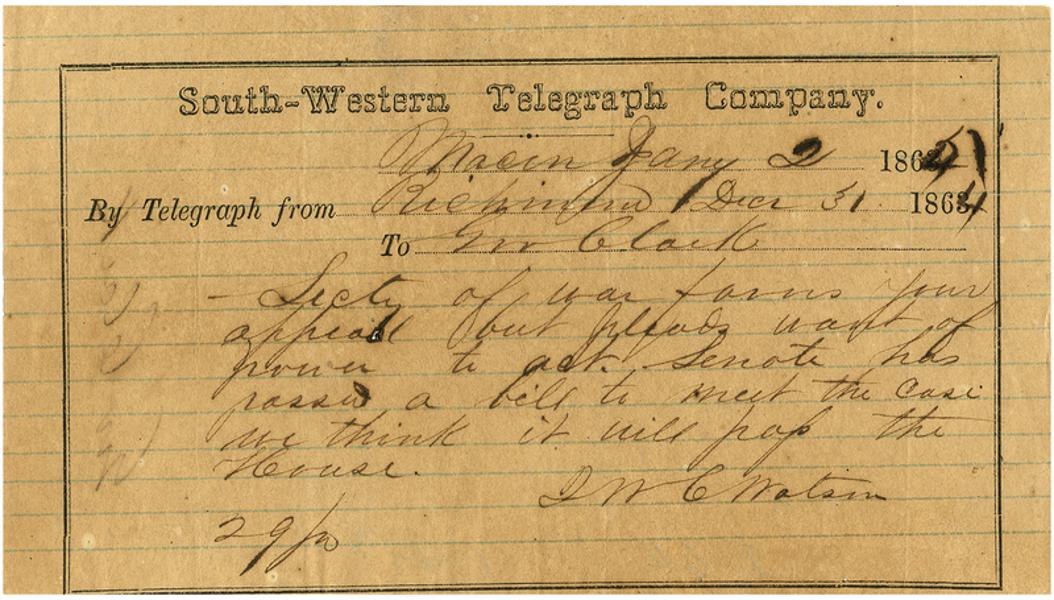 South-Western Telegraph Company.
Macon Jany 2 1865
By Telegraph from Richmond Decr 31 1864
To Gov Clark
- Secty of war favors your
appeal but pleads want of
power to act. Senate has
passed a bill to meet the case
we think it will pass the
House.
J W C Watson
29/